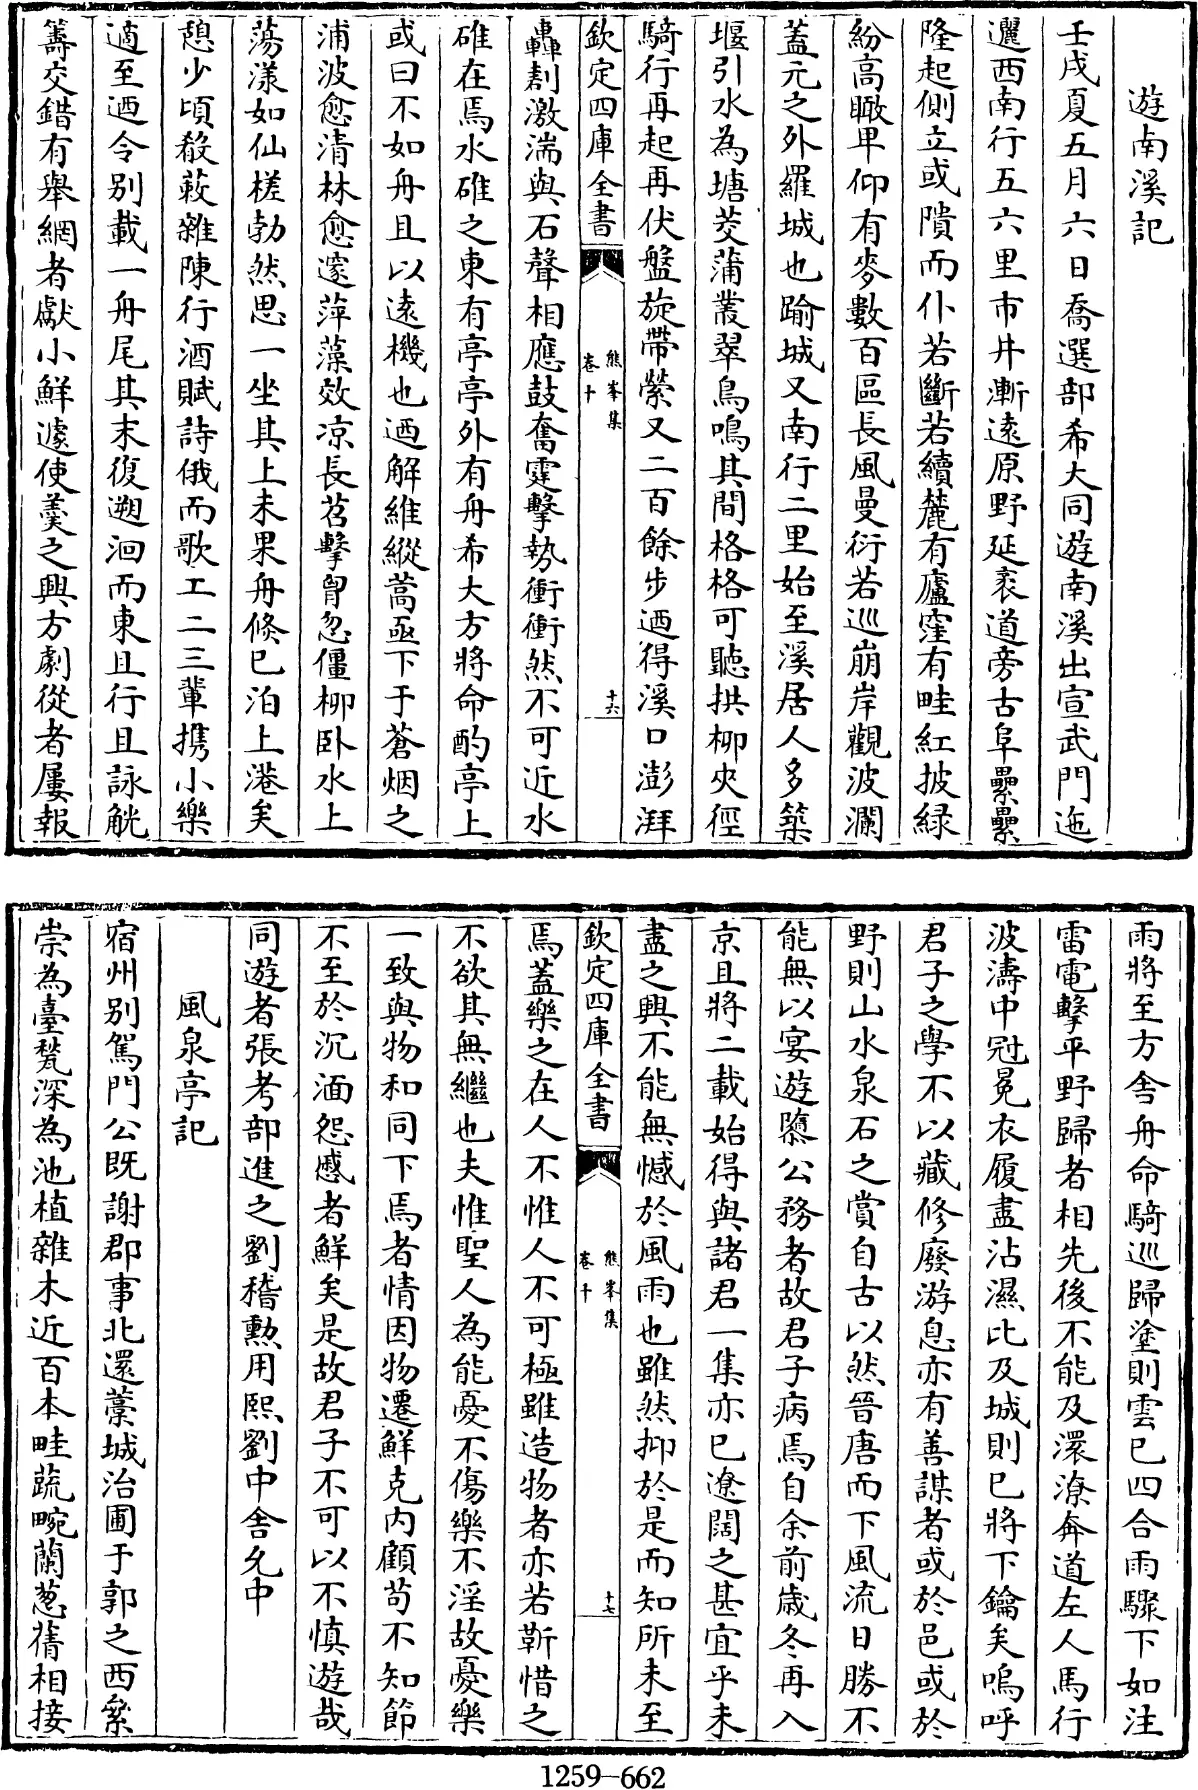 遊南溪記
壬戌夏五月六日喬選部希大同遊南溪出宣武門迤
邐西南行五六里市井漸遠原野延袤道旁古阜纍纍
隆起側立或隤而仆若斷若續麓有廬窪有畦紅披緑
紛高瞰卑仰有麥數百區長風曼衍若巡崩岸觀波瀾
蓋元之外羅城也踰城又南行二里始至溪居人多築
堰引水為塘茭蒲叢翠鳥鳴其間格格可聽拱栁夾徑
騎行再起再伏盤旋帶縈又二百餘步迺得溪口澎湃
欽定四庫全書
熊峯集
卷十
十六
轟劃激湍與石聲相應鼓奮霆擊勢衝衝然不可近水
碓在焉水碓之東有亭亭外有舟希大方將命酌亭上
或曰不如舟且以遠機也迺解維縱蒿亟下于蒼烟之
浦波愈清林愈邃萍藻效凉長苕擊胷忽僵栁臥水上
蕩漾如仙槎勃然思一坐其上未果舟倐已泊上港矣
憩少頃殽蔌雜陳行酒賦詩俄而歌工二三輩攜小樂
適至迺令别載一舟尾其末復遡洄而東且行且詠觥
籌交錯有舉網者獻小鮮遽使羮之興方劇從者屢報
雨將至方舎舟命騎巡歸塗則雲已四合雨驟下如注
雷電擊平野歸者相先後不能及潈潦奔道左人馬行
波濤中冠冕衣履盡沾濕比及城則已將下鑰矣嗚呼
君子之學不以藏修廢游息亦有善謀者或於邑或於
野則山水泉石之賞自古以然晉唐而下風流日勝不
能無以宴遊隳公務者故君子病焉自余前歳冬再入
京且將二載始得與諸君一集亦已遼闊之甚宜乎未
盡之興不能無憾於風雨也雖然抑於是而知所未至
欽定四庫全書
熊峯集
卷十
十七
焉蓋樂之在人不惟人不可極雖造物者亦若靳惜之
不欲其無繼也夫惟聖人為能憂不傷樂不淫故憂樂
一致與物和同下焉者情因物遷鮮克内顧苟不知節
不至於沉湎怨慼者鮮矣是故君子不可以不慎遊哉
同遊者張考部進之劉稽勲用熙劉中舎允中
風泉亭記
宿州别駕門公既謝郡事北還藁城治圃于郭之西絫
崇為臺甃深為池植雜木近百本畦蔬畹蘭葱蒨相接
1259-662